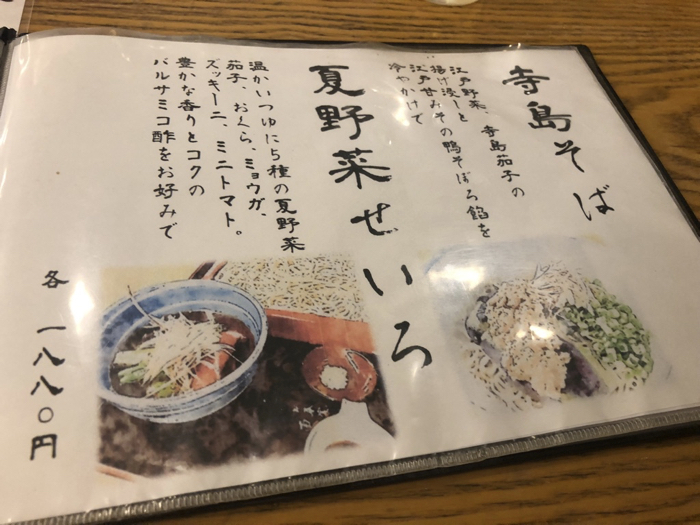 寺島そば
江戸野菜、寺島茄子の
揚げ浸しと
江戸甘みその鴨そぼろ餡を
冷やかけで
夏野菜せいろ
温かいつゆに5種の夏野菜
茄子、おくら、ミョウガ、
ズッキーニ、ミニトマト。
豊かな香りとコクの
バルサミコ酢をお好みで
各 一八八〇円